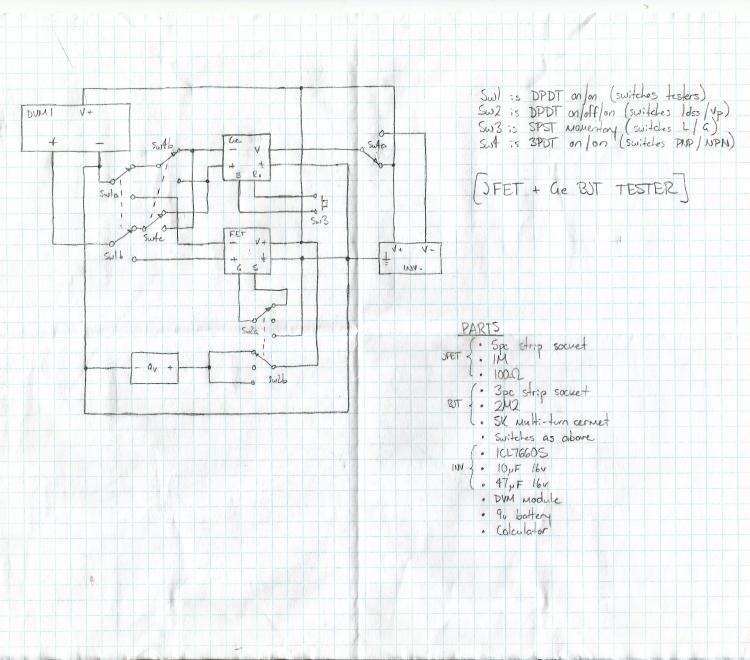 Sw1 is DPDT on/on (switches testers)
Sw2 is DPDT on/off/on (switches Idss/Vp)
Sw3 is SPST momentary (switches L/G)
Sw4 is 3PDT on/on (switches PNP/NPN)
[JFET + Ge BJT TESTER]
DVM1 V+
+ -
Sw4b
Ge
- V
+ ⏚
B Rc
Sw4a
Sw1a
Sw4c
Sw3
Sw1b
FET
- V+
+ ⏚
G S
V+ V-
⏚ INV-
Sw2a
- 9v +
Sw2b
PARTS
JFET { • 5pc strip socket
• 1M
• 100Ω
BJT { • 3pc strip socket
• 2M2
• 5K multi-turn cermet
• Switches as above
INV { • ICL7660S
• 10µF 16v
• 47µF 16v
• DVM module
• 9v battery
• Calculator